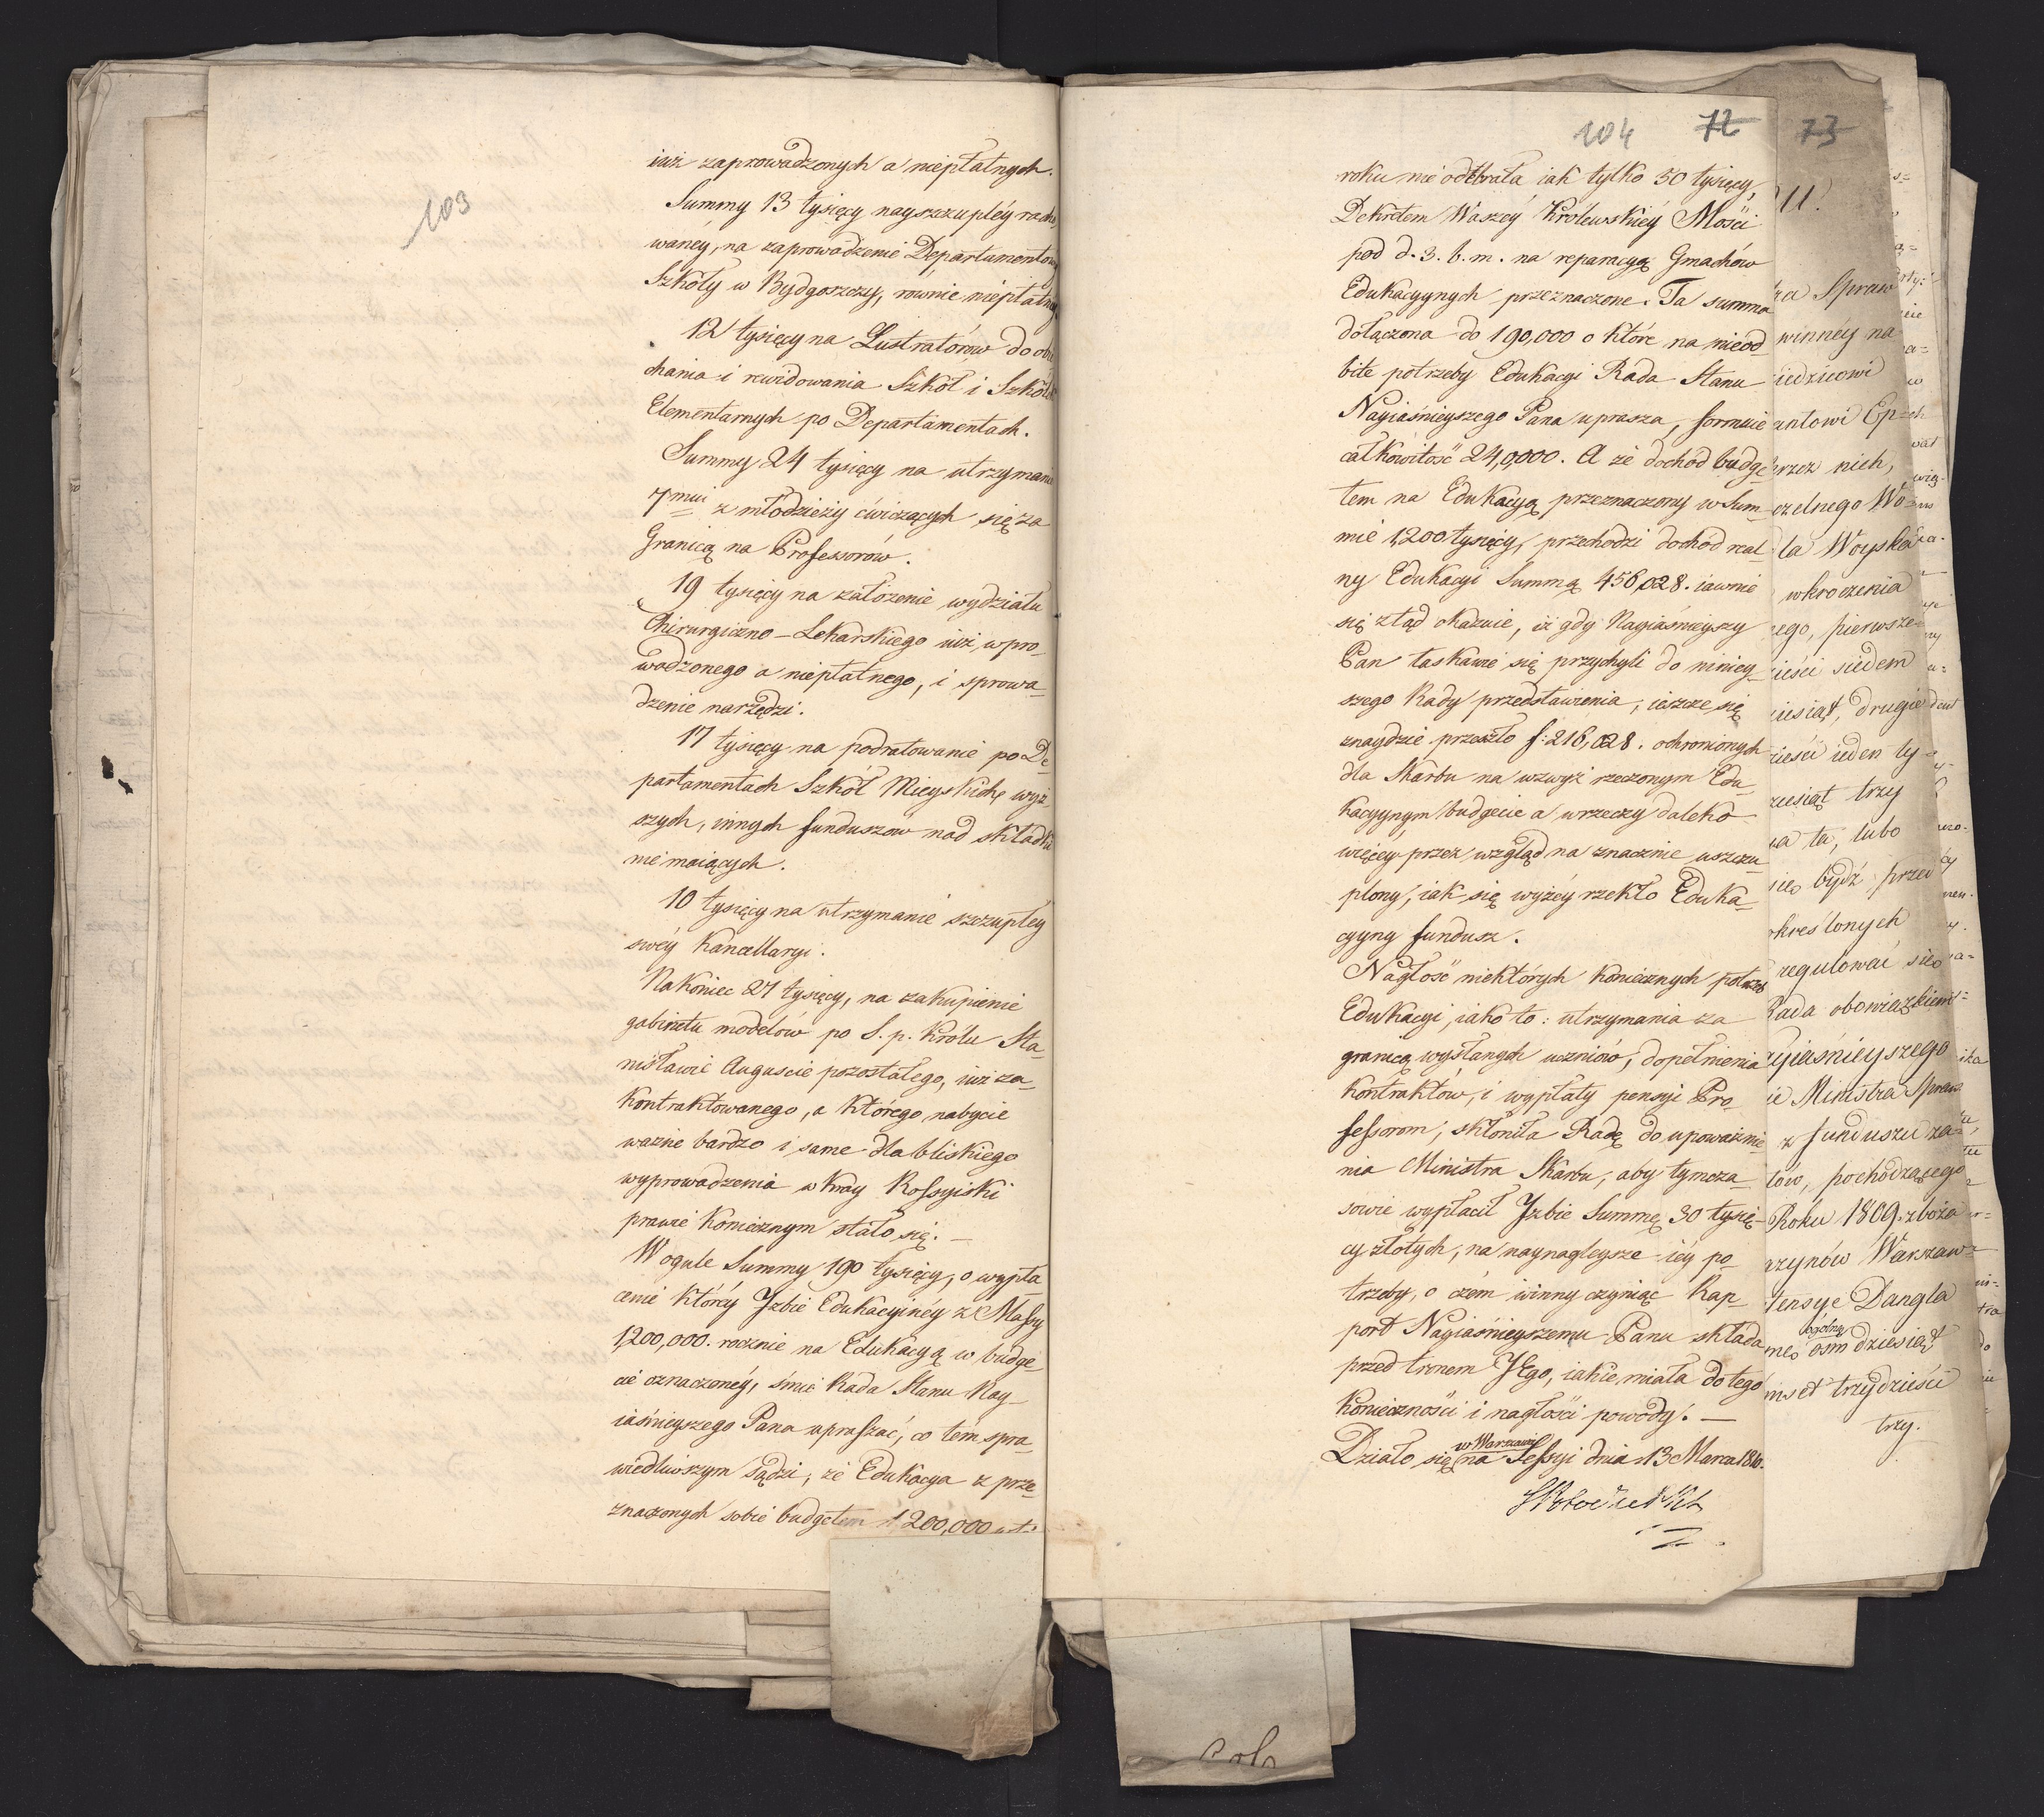 103
iuż zaprowadzonych a niepłatnych.
Summy 13 tysięcy nayszczupléy racho
wanéy, na zaprowadzenie Departamentow
Szkoły w Bydgoszczy, rownie niepłatney
12 tysięcy na Lustratórow do obie
chania i rewidowania Szkół i Szkółek
Elementarnych po Departamentach.
Summy 24 tysięcy na utrzymanie
7miu z młodzieży ćwiczących się za
Granicą na Professorów.
19 tysięcy na założenie wydziału
Chirurgiczno-Lekarskiego iuż wpro-
wadzonego a niepłatnego, i sprowa-
dzenie narzędzi.
17 tysięcy na podratowanie po De-
partamentach Szkół Mieyskich wyż-
szych, innych funduszów nad składki
nie maiących.
10 tysięcy na utrzymanie szczupłey
swéy Kancellaryi.
Nakoniec 27 tysięcy, na zakupienie
gabinetu modelów po S. p. Królu Sta-
nisławie Auguscie pozostałego, iuż za-
kontraktowanego, a którego nabycie
ważne bardzo i same dla bliskiego
wyprowadzenia w Kray Rossyiski
prawie koniecznym stało się. —
Wogule Summy 190 tysięcy, o wypła
cenie któréy Jzbie Edukacyinéy z Massy
1,200,000. rocznie na Edukacyą w budge
cie oznaczonéy, śmié Rada Stanu Nay-
iaśnieyszego Pana upraszać, co tém spra-
wiedliwszym sądzi, że Edukacya z prze-
znaczonych sobie budgetem 1,200,000
104 72
roku nie odebrała iak tylko 50 tysięcy,
Dekretem Waszéy Królewskiéy Mości
pod d. 3. b. m. na reparacyą Gmachów
Edukacyynych przeznaczone. Ta summa
dołączona do 190,000 o które na nieod-
bite potrzeby Edukacyi Rada Stanu
Nayiaśnieyszego Pana uprasza, formuie
całkowitość 24,0,000. A że dochód budge
tem na Edukacyą przeznaczony w Sum-
mie 1,200 tysięcy, przechodzi dochód real-
ny Edukacyi Summą 456,028. iawnie
się ztąd okazuie, iż gdy Nayiaśnieyszy
Pan łaskawie się przychyli do niniey-
szego Rady przedstawienia, ieszcze się
znaydzie przeszło f: 216,028. ochronionych
dla Skarbu na wzwyż rzeczonym Edu-
kacyynym budgecie a wrzeczy daleko
więcey przez wzgląd na znacznie uszczu-
plony, iak się wyżéy rzekło Eduka-
cyyny fundusz.
Nagłość niektórych koniecznych potrzeb
Edukacyi, iako to: utrzymania za
granicą wysłanych uczniów, dopełnienia
kontraktów, i wypłaty pensyi Pro-
fessorom, skłoniła Radę do upoważnie
nia Ministra Skarbu, aby tymcza-
sowie wypłacił Jzbie Summę 30 tysię-
cy złotych, na naynagleysze iéy po-
trzeby, o czém winny czyniąc Rap-
port Nayiaśnieyszemu Panu składa
przed tronem JEgo, iakie miała do tego
konieczności i nagłości powody. —
w Warszawie
Działo się na Sessyi dnia 13 Marca 1810.
73
ra Spraw
winnéy na
iedzicowi
antowi Ep
rzez nich,
czelnego Wo
la Woyska
wkroczenia
ego, pierwsze
ieści siedem
iesiąt, drugie
ieści ieden ty-
ziesiąt trzy
na ta, lubo
być przed
okreslonych
regulować się
Rada obowiązkiem
yiaśnieyszego
ie Ministra Spraw
z funduszu za-
łów, pochodzącego
Roku 1809. zboża
azynów Warszaw-
tensye Dangla
ogólną
ośmdziesiąt
mset trzydzieści
trzy.